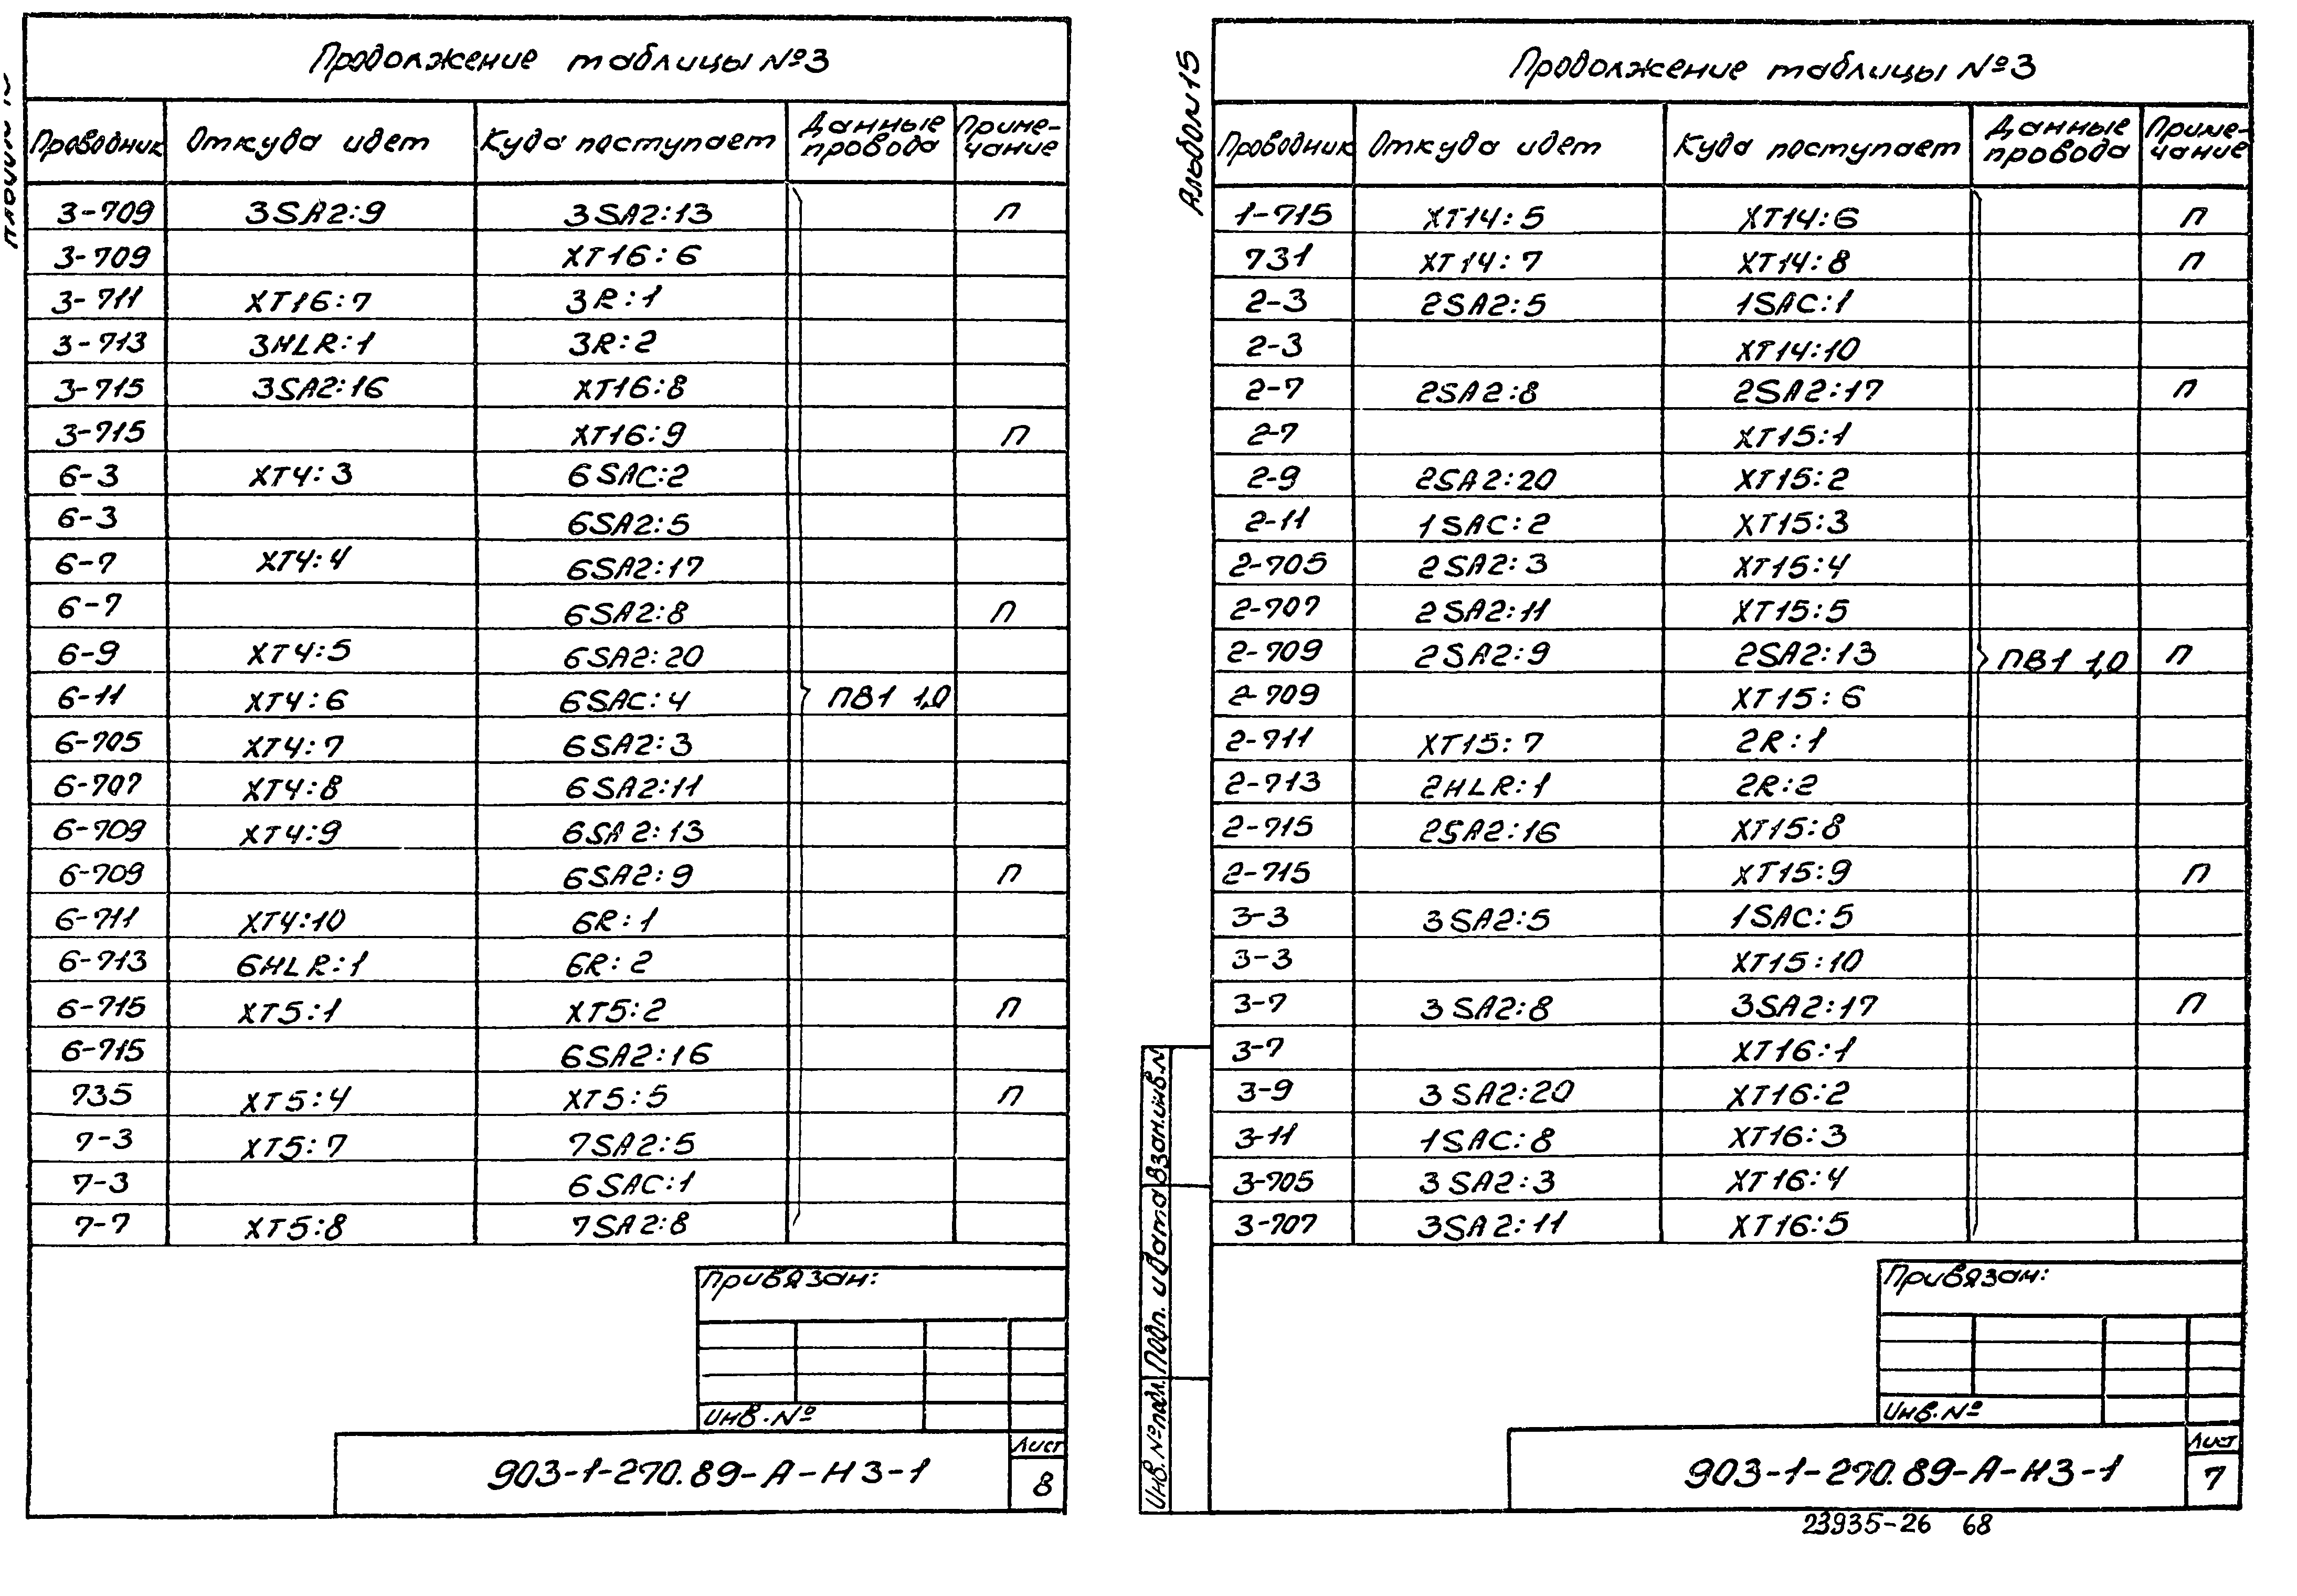 Продолжение таблицы №3
Проводник Откуда идет Куда поступает Данные провода Приме-чание
3-709 3SA2:9 3SA2:13 П
3-709 XT16:6
3-711 XT16:7 3R:1
3-713 3HLR:1 3R:2
3-715 3SA2:16 XT16:8
3-715 XT16:9 П
6-3 XT4:3 6SAC:2
6-3 6SA2:5
6-7 XT4:4 6SA2:17
6-7 6SA2:8 П
6-9 XT4:5 6SA2:20
6-11 XT4:6 6SAC:4 ПВ1 1,0
6-705 XT4:7 6SA2:3
6-707 XT4:8 6SA2:11
6-709 XT4:9 6SA2:13
6-709 6SA2:9 П
6-711 XT4:10 6R:1
6-713 6HLR:1 6R:2
6-715 XT5:1 XT5:2 П
6-715 6SA2:16
735 XT5:4 XT5:5 П
7-3 XT5:7 7SA2:5
7-3 6SAC:1
7-7 XT5:8 7SA2:8
Привязан:
Инв.№
903-1-270.89-А-НЗ-1
Лист
8
Альбом 15
Продолжение таблицы №3
Проводник Откуда идет Куда поступает Данные провода Приме-чание
1-715 XT14:5 XT14:6 П
731 XT14:7 XT14:8 П
2-3 2SA2:5 1SAC:1
2-3 XT14:10
2-7 2SA2:8 2SA2:17 П
2-7 XT15:1
2-9 2SA2:20 XT15:2
2-11 1SAC:2 XT15:3
2-705 2SA2:3 XT15:4
2-707 2SA2:11 XT15:5
2-709 2SA2:9 2SA2:13 ПВ1 1,0 П
2-709 XT15:6
2-711 XT15:7 2R:1
2-713 2HLR:1 2R:2
2-715 2SA2:16 XT15:8
2-715 XT15:9 П
3-3 3SA2:5 1SAC:5
3-3 XT15:10
3-7 3SA2:8 3SA2:17 П
3-7 XT16:1
3-9 3SA2:20 XT16:2
3-11 1SAC:8 XT16:3
3-705 3SA2:3 XT16:4
3-707 3SA2:11 XT16:5
Инв.№подл. Подп. и дата Взам.инв.№
Привязан:
Инв.№
903-1-270.89-А-НЗ-1
Лист
7
23935-26 68